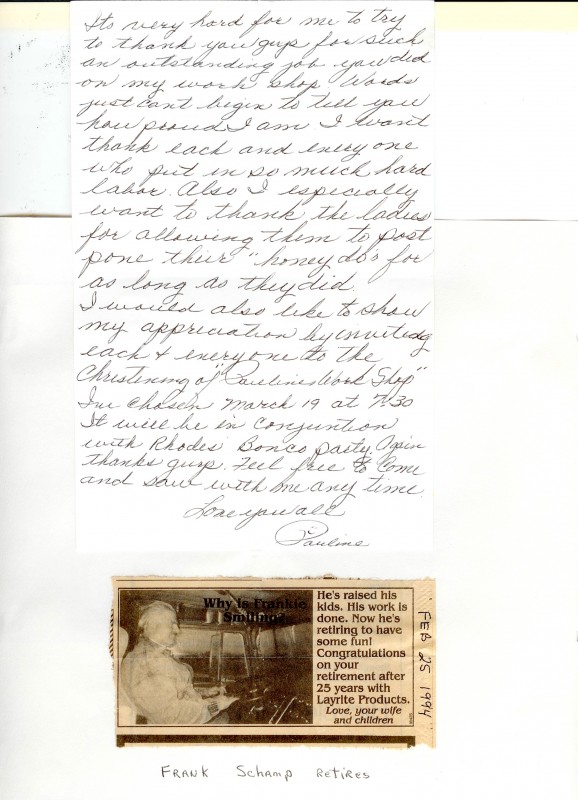 Its very hard for me to try
to thank you guys for such
an outstanding job you did
on my work shop Words
just cant begin to tell you
how proud I am. I want
thank each and every one
who put in so much hard
labor. Also I especially
want to thank the ladies
for allowing them to post
pone their "honey do's for
as long as they did.
I would also like to show
my appriciation by inviteing
each & everyone to the
Christening of "Paulines Work Shop"
I've chosen March 19 at 7:30
It will be in conjuntion
with Rhodes' Bonco party. Again
thanks guys. Feel free to come
and saw with me any time.
Love you all
"Pauline
Why is Frankie
Smiling?
He's raised his
kids. His work is
done. Now he's
retiring to have
some fun!
Congratulations
on your
retirement after
25 years with
Layrite Products.
Love, your wife
and children
FEB 25 1994
FRANK SCHAMP RETIRES